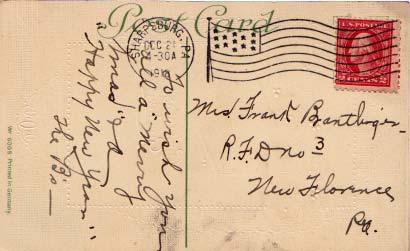 Post Card
SHARPSBURG, PA.
DEC 2
-30A
U.S. POSTAGE
2 CENTS 2
To wish you
all a "Merry
Xmas" & a
"Happy New Year"
The B's —
Mrs Frank Brantlinger
R.F.D no 3
New Florence
Pa.
W 9095 Printed in Germany.